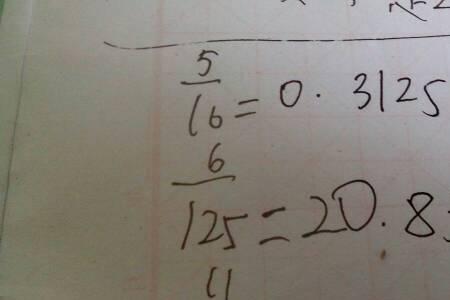 5
16 = 0.3125
6
125 = 20.8